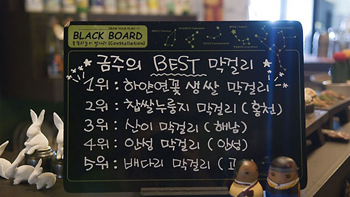 BLACK BOARD
(Constellation)
금주의 BEST 막걸리
1위 : 하얀연꽃 생쌀 막걸리
2위 : 찹쌀누룽지 막걸리 (홍천)
3위 : 산이 막걸리 (해남)
4위 : 안성 막걸리 (안성)
5위 : 배다리 막걸리 (고